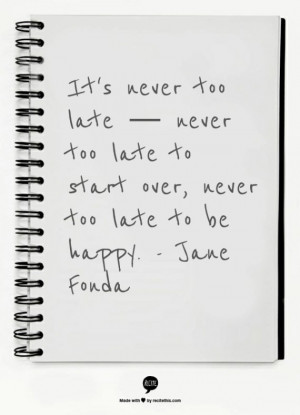 It's never too
late — never
too late to
start over, never
too late to be
happy. - Jane
Fonda
RECITE
Made with ♥ by recitethis.com